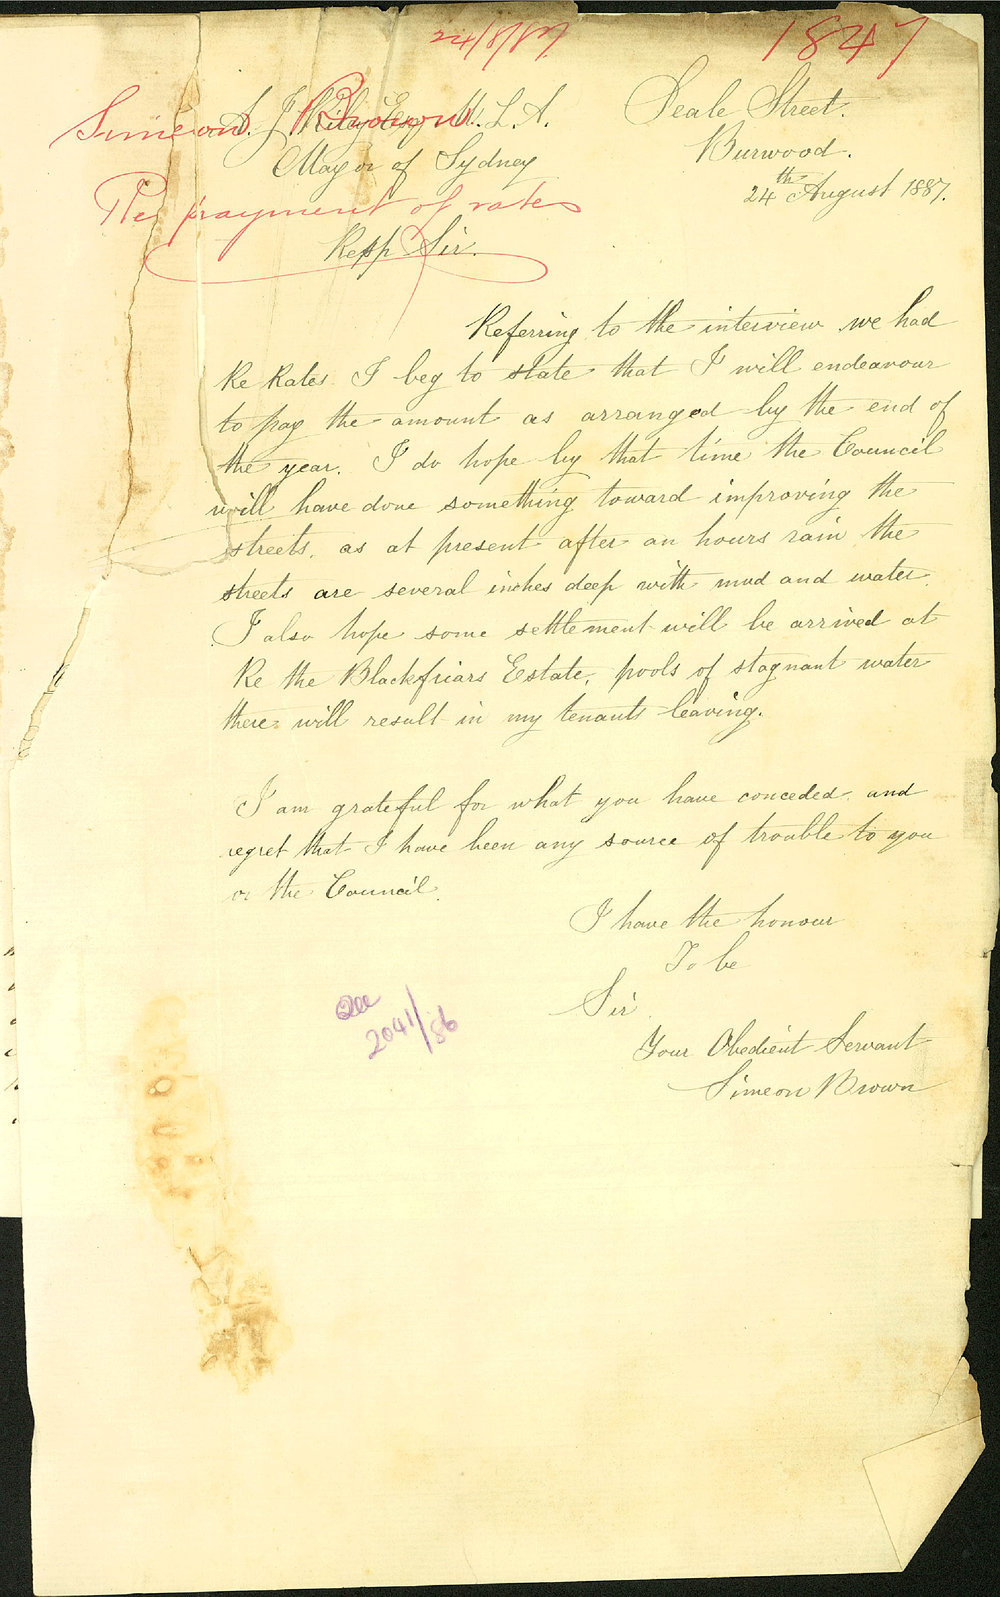 24/8/87
1847
Simeon Brown
Re payment of rates
A. J. Riley Esq M.L.A.
Mayor of Sydney
Seale Street.
Burwood.
24th August 1887.
Resp Sir.
Referring to the interview we had
Re Rates. I beg to state that I will endeavour
to pay the amount as arranged by the end of
the year. I do hope by that time the Council
will have done something toward improving the
streets, as at present after an hours rain the
streets are several inches deep with mud and water.
I also hope some settlement will be arrived at
Re the Blackfriars Estate, pools of stagnant water
there will result in my tenants leaving.
I am grateful for what you have conceded and
regret that I have been any source of trouble to you
or the Council.
I have the honour
To be
Sir.
Your Obedient Servant
Simeon Brown
2041/86